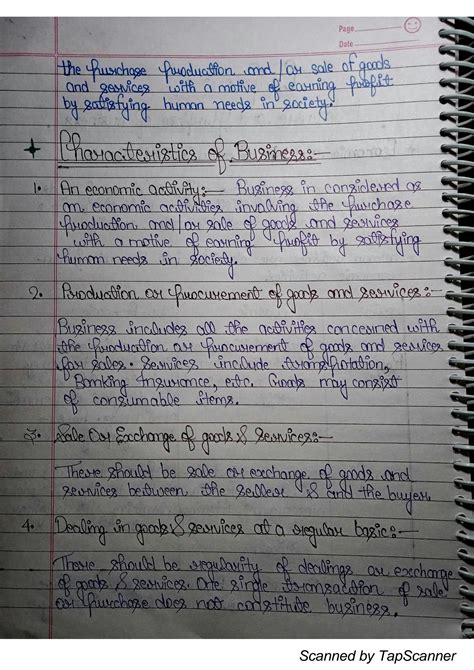 Page
Date
the purchase production and / or sale of goods
and services with a motive of earning profit
by satisfying human needs in society.
Characteristics of Business:-
1. An economic activity:- Business in considered as
an economic activities involving the purchase
production and/or sale of goods and services
with a motive of earning profit by satisfying
human needs in society.
2. Production or procurement of goods and services:-
Business includes all the activities concerned with
the production or procurement of goods and services
for sales. Services include transportation,
Banking Insurance, etc. Goods may consist
of consumable items.
3. Sale Or Exchange of goods & services:-
There should be sale or exchange of goods and
services between the seller & and the buyer.
4. Dealing in goods & services at a regular basic:-
There should be regularity of dealings or exchange
of goods & services. One single transaction of sale
or purchase does not constitute business.
Scanned by TapScanner